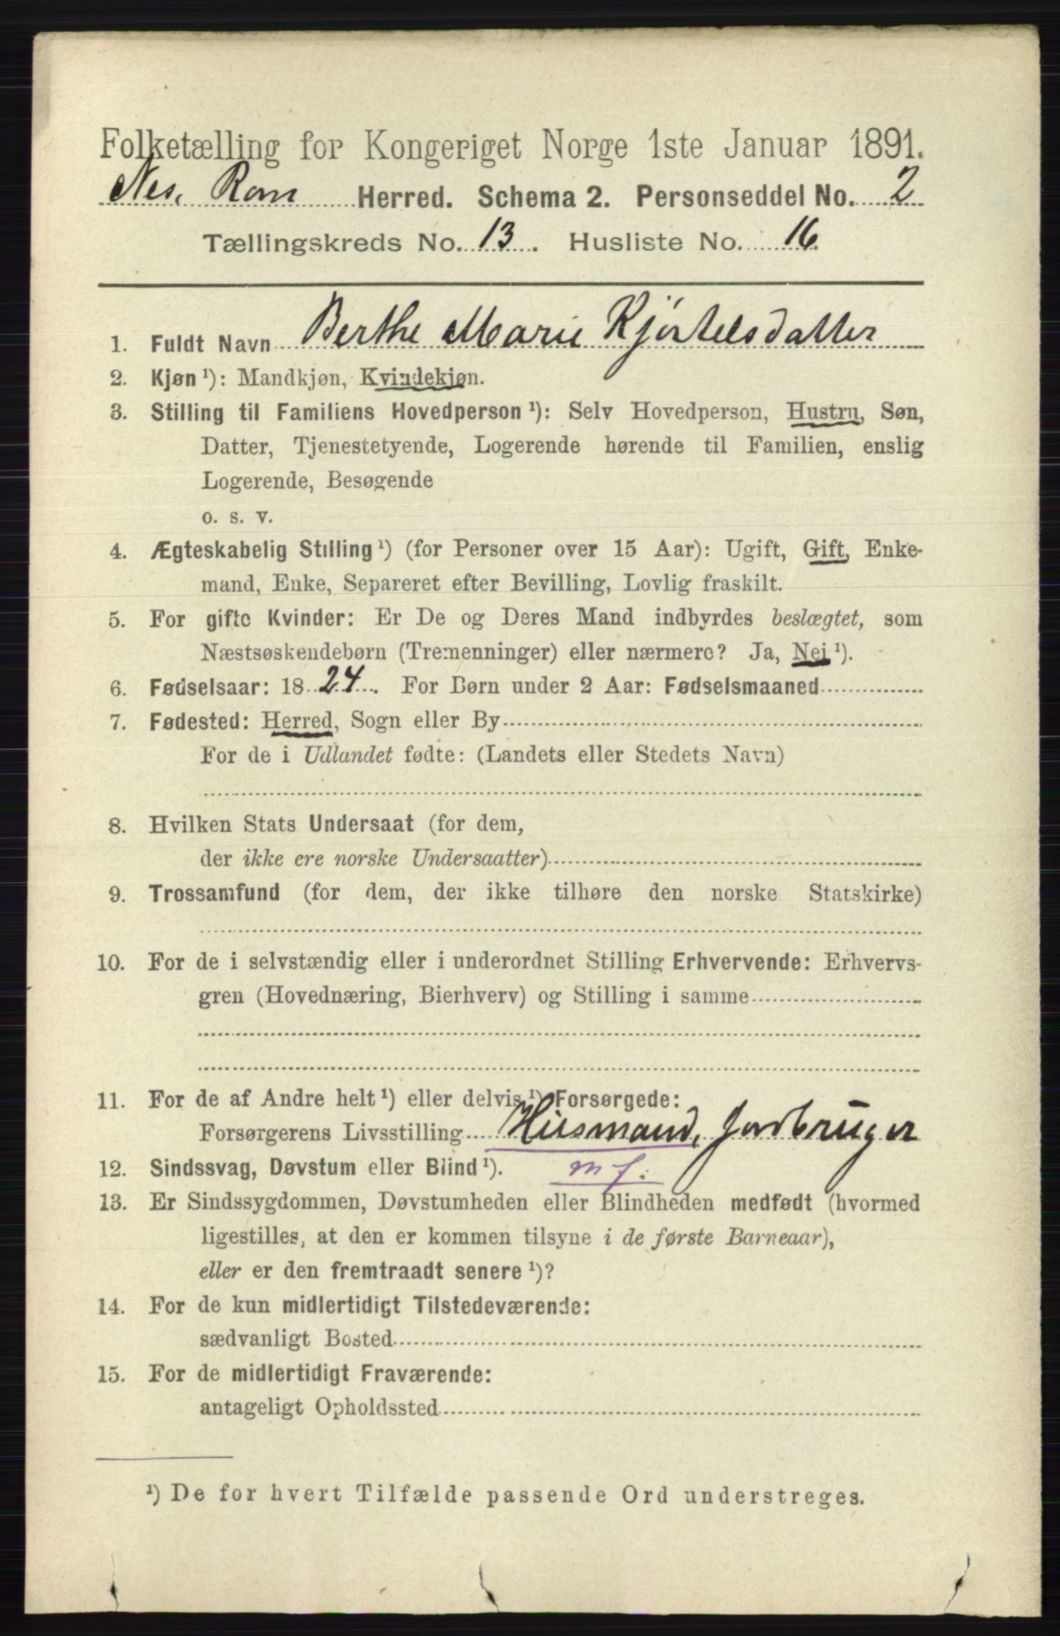 Folketælling for Kongeriget Norge 1ste Januar 1891.
Nes, Rom Herred. Schema 2. Personseddel No. 2
Tællingskreds No. 13. Husliste No. 16
1. Fuldt Navn Berthe Marie Kjørtelsdatter
2. Kjøn ¹): Mandkjøn, Kvindekjøn.
3. Stilling til Familiens Hovedperson ¹): Selv Hovedperson, Hustru, Søn,
Datter, Tjenestetyende, Logerende hørende til Familien, enslig
Logerende, Besøgende
o. s. v.
4. Ægteskabelig Stilling ¹) (for Personer over 15 Aar): Ugift, Gift, Enke-
mand, Enke, Separeret efter Bevilling, Lovlig fraskilt.
5. For gifte Kvinder: Er De og Deres Mand indbyrdes beslægtet, som
Næstsøskendebørn (Tremenninger) eller nærmere? Ja, Nei ¹).
6. Fødselsaar: 1824. For Børn under 2 Aar: Fødselsmaaned
7. Fødested: Herred, Sogn eller By
For de i Udlandet fødte: (Landets eller Stedets Navn)
8. Hvilken Stats Undersaat (for dem,
der ikke ere norske Undersaatter)
9. Trossamfund (for dem, der ikke tilhøre den norske Statskirke)
10. For de i selvstændig eller i underordnet Stilling Erhvervende: Erhvervs-
gren (Hovednæring, Bierhverv) og Stilling i samme
11. For de af Andre helt ¹) eller delvis ¹) Forsørgede:
Forsørgerens Livsstilling Husmand, Jordbruger
12. Sindssvag, Døvstum eller Blind ¹). m f:
13. Er Sindssygdommen, Døvstumheden eller Blindheden medfødt (hvormed
ligestilles, at den er kommen tilsyne i de første Barneaar),
eller er den fremtraadt senere ¹)?
14. For de kun midlertidigt Tilstedeværende:
sædvanligt Bosted
15. For de midlertidigt Fraværende:
antageligt Opholdssted
¹) De for hvert Tilfælde passende Ord understreges.